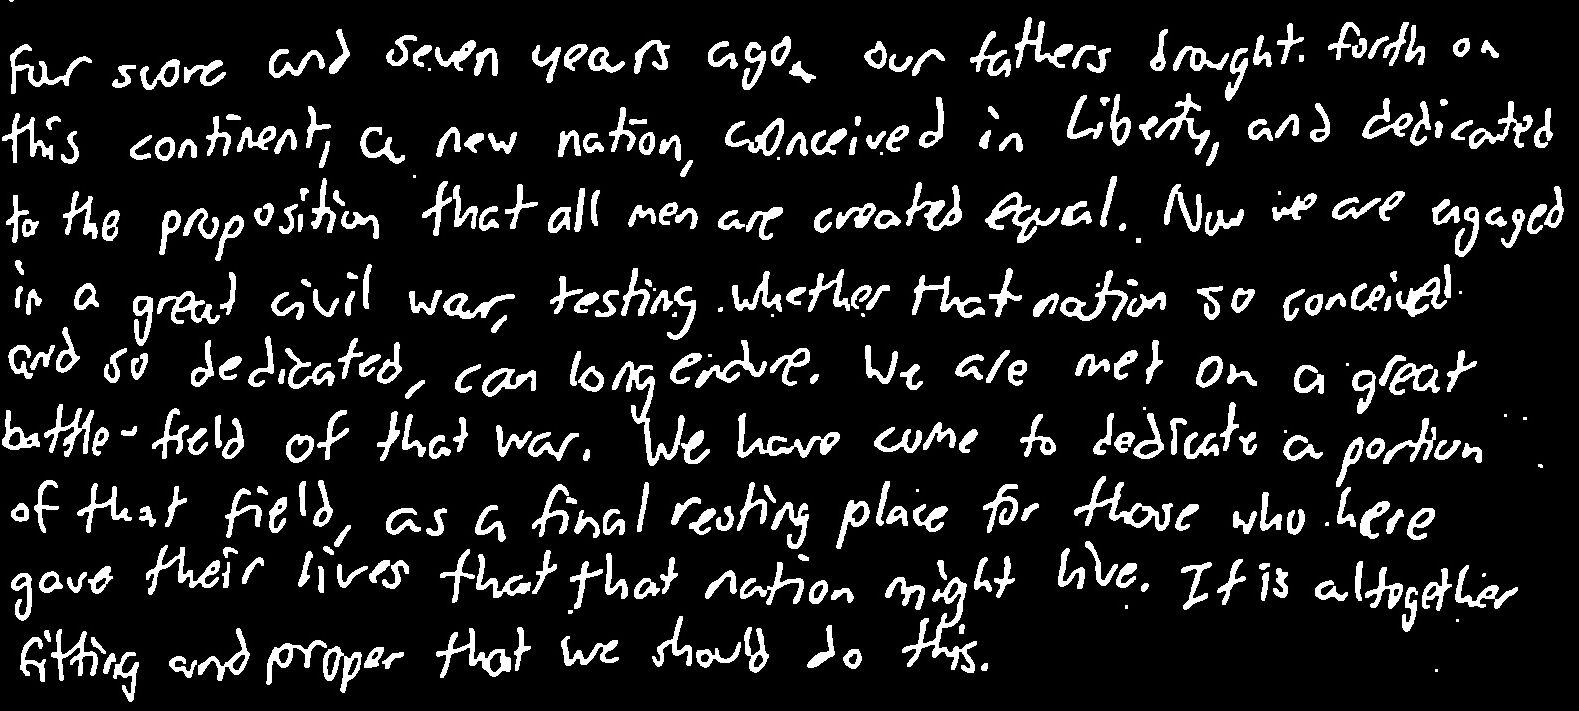 Four score and seven years ago, our fathers brought forth on
this continent, a new nation, conceived in Liberty, and dedicated
to the proposition that all men are created equal. Now we are engaged
in a great civil war, testing whether that nation so conceived
and so dedicated, can long endure. We are met on a great
battle-field of that war. We have come to dedicate a portion
of that field, as a final resting place for those who here
gave their lives that that nation might live. It is altogether
fitting and proper that we should do this.